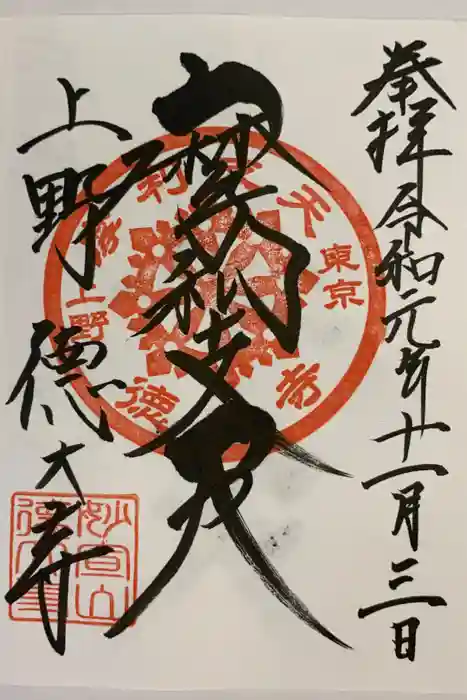 奉拝 令和元年十一月三日
摩利支天
上野 徳大寺
東京
上野
摩利支天
徳大寺
妙宣山
徳大寺